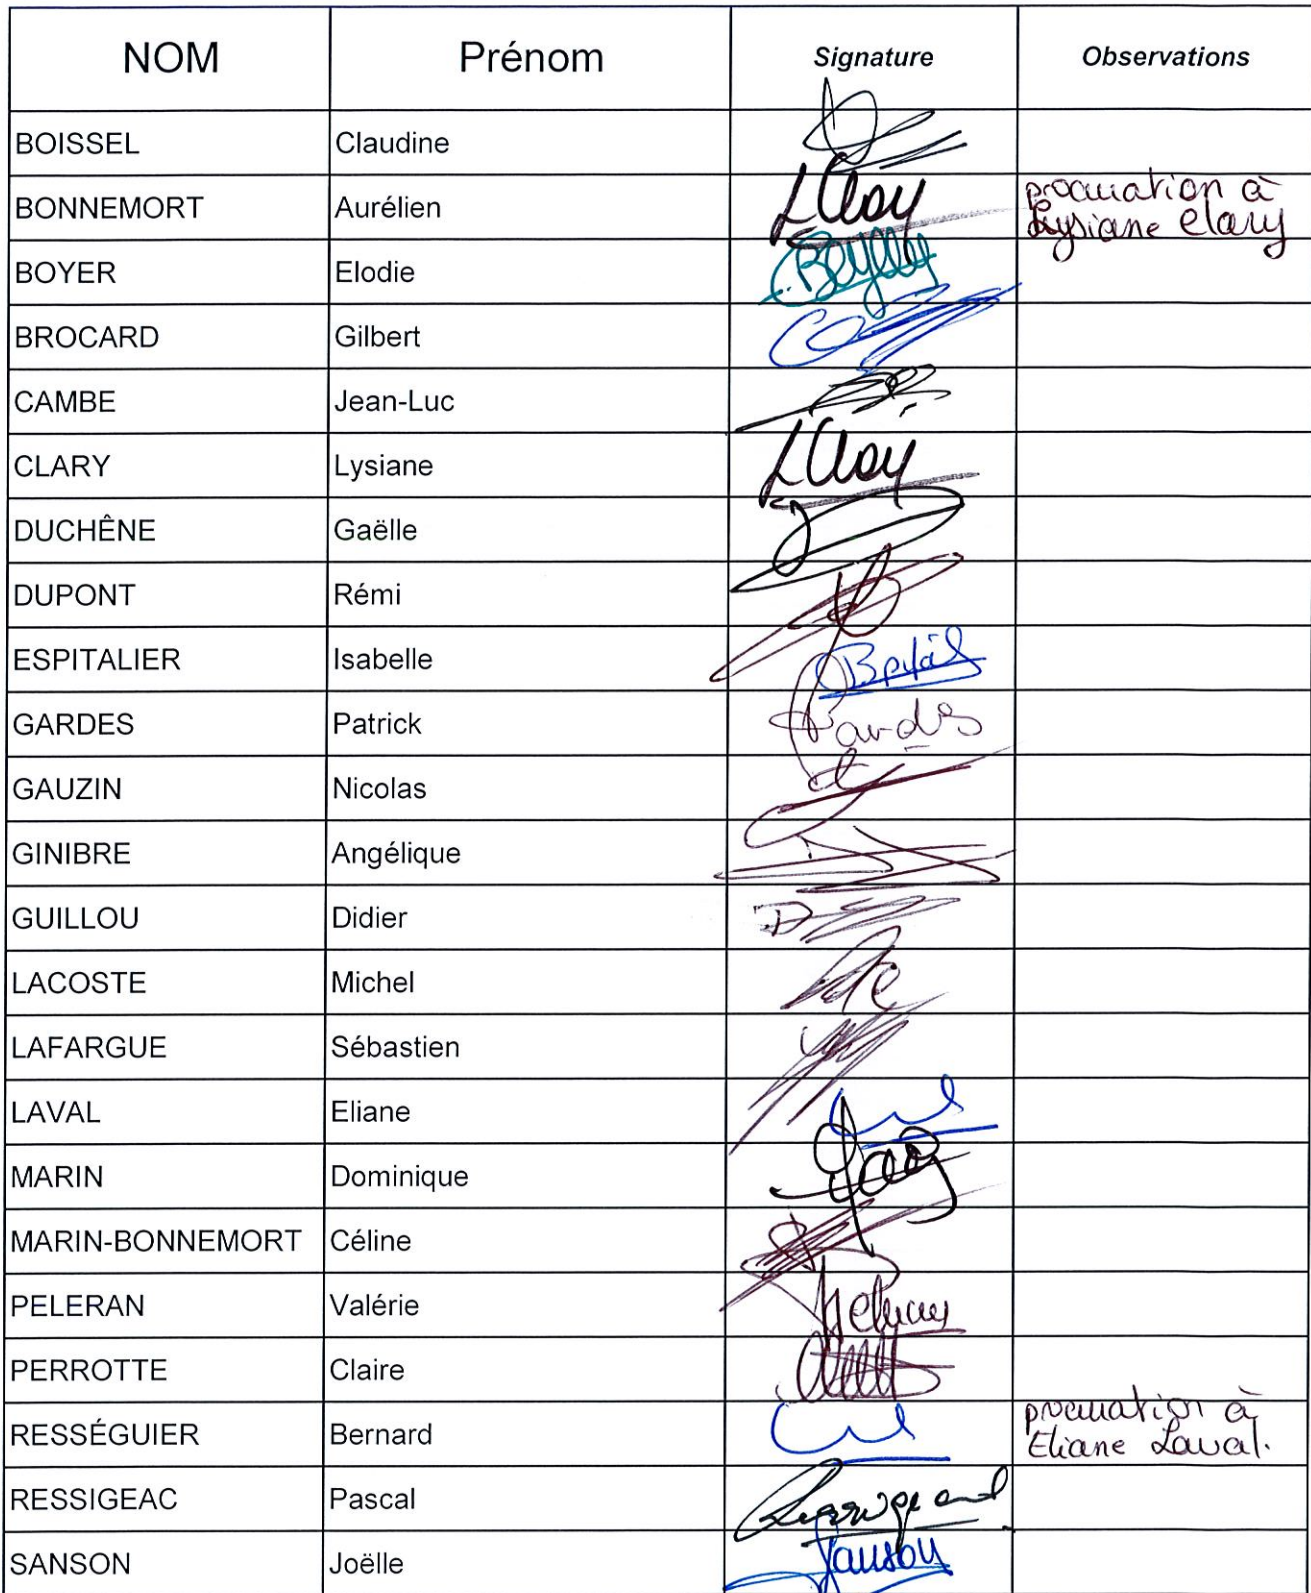 NOM Prénom Signature Observations
BOISSEL Claudine
BONNEMORT Aurélien LClary procuration à
Lysiane Clary
BOYER Elodie
BROCARD Gilbert
CAMBE Jean-Luc
CLARY Lysiane LClary
DUCHÊNE Gaëlle
DUPONT Rémi
ESPITALIER Isabelle
GARDES Patrick Gardes
GAUZIN Nicolas
GINIBRE Angélique
GUILLOU Didier
LACOSTE Michel
LAFARGUE Sébastien
LAVAL Eliane
MARIN Dominique
MARIN-BONNEMORT Céline
PELERAN Valérie
PERROTTE Claire
RESSÉGUIER Bernard procuration à
Eliane Laval.
RESSIGEAC Pascal
SANSON Joëlle Sanson